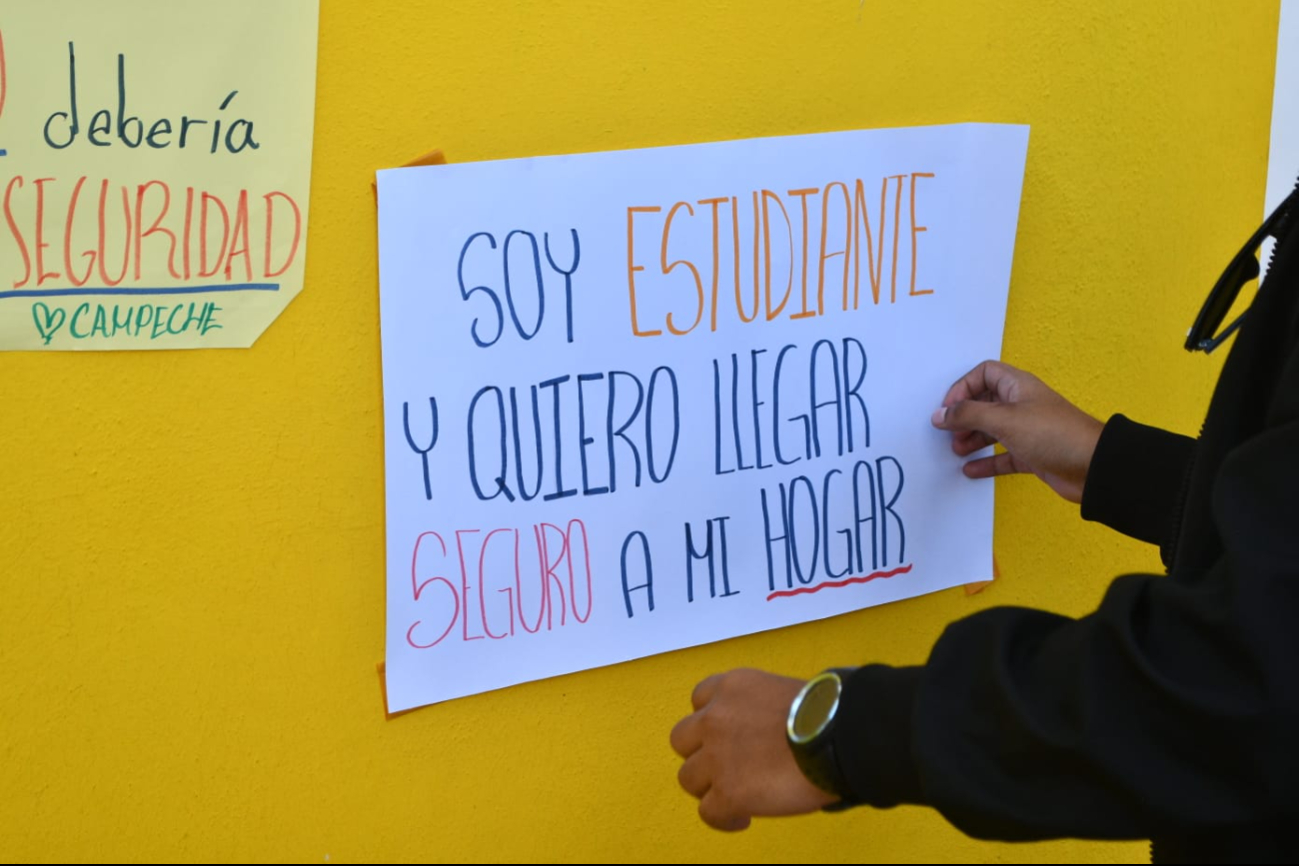 debería
SEGURIDAD
CAMPECHE
SOY ESTUDIANTE
Y QUIERO LLEGAR
SEGURO A MI HOGAR